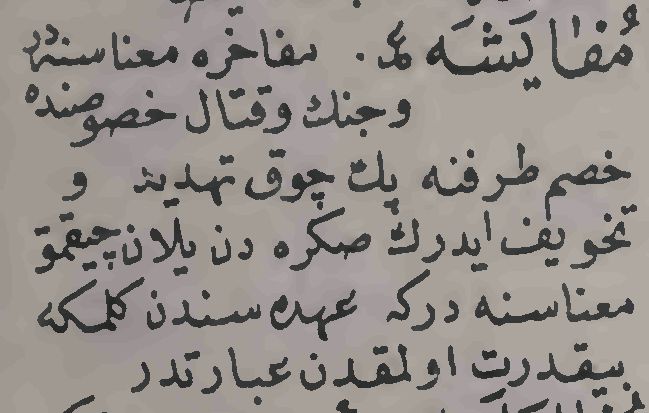 مُفَايَشَه ع. مفاخره معناسنه در
وجنك وقتال خصوصنده
خصم طرفنه پك چوق تهديد و
تخويف ايدرك صكره دن يلان چيقمق
معناسنه دركه عهده سندن كلمكه
بيقدرت اولمقدن عبارتدر